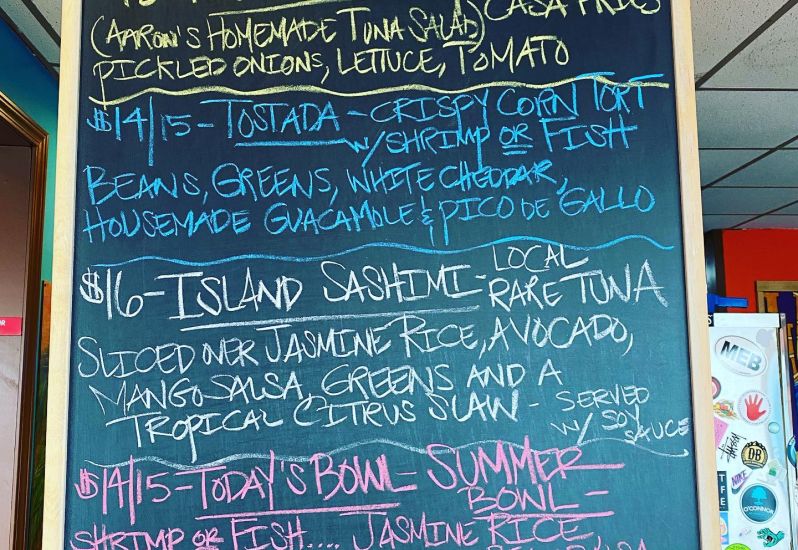 CASA FRIES
(AARON'S HOMEMADE TUNA SALAD)
PICKLED ONIONS, LETTUCE, TOMATO
$14/15 - TOSTADA - CRISPY CORN TORT
W/ SHRIMP OR FISH
BEANS, GREENS, WHITE CHEDDAR,
HOUSEMADE GUACAMOLE & PICO DE GALLO
$16 - ISLAND SASHIMI - LOCAL
RARE TUNA
SLICED OVER JASMINE RICE, AVOCADO,
MANGO SALSA, GREENS AND A
TROPICAL CITRUS SLAW - SERVED
W/ SOY
SAUCE
$14/15 - TODAY'S BOWL - SUMMER
BOWL -
SHRIMP OR FISH.... JASMINE RICE,
MEB
NIKE
DB
O'CONNOR